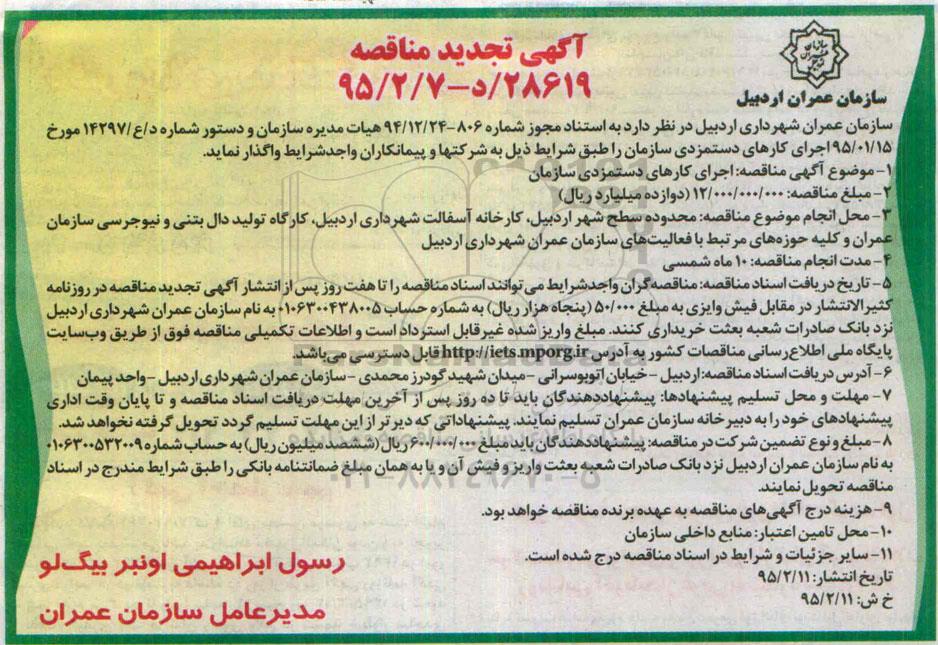 آگهی تجدید مناقصه
۲۸۶۱۹/د-۹۵/۲/۷
سازمان عمران اردبیل
سازمان عمران شهرداری اردبیل در نظر دارد به استناد مجوز شماره ۸۰۶-۹۴/۱۲/۲۴ هیات مدیره سازمان و دستور شماره د/ع/۱۴۲۹۷ مورخ
۹۵/۰۱/۱۵ اجرای کارهای دستمزدی سازمان را طبق شرایط ذیل به شرکتها و پیمانکاران واجدشرایط واگذار نماید.
۱- موضوع آگهی مناقصه: اجرای کارهای دستمزدی سازمان
۲- مبلغ مناقصه: ۱۲/۰۰۰/۰۰۰/۰۰۰ (دوازده میلیارد ریال)
۳- محل انجام موضوع مناقصه: محدوده سطح شهر اردبیل، کارخانه آسفالت شهرداری اردبیل، کارگاه تولید دال بتنی و نیوجرسی سازمان
عمران و کلیه حوزه‌های مرتبط با فعالیت‌های سازمان عمران شهرداری اردبیل
۴- مدت انجام مناقصه: ۱۰ ماه شمسی
۵- تاریخ دریافت اسناد مناقصه: مناقصه‌گران واجدشرایط می توانند اسناد مناقصه را تا هفت روز پس از انتشار آگهی تجدید مناقصه در روزنامه
کثیرالانتشار در مقابل فیش واریزی به مبلغ ۵۰/۰۰۰ (پنجاه هزار ریال) به شماره حساب ۰۱۰۶۳۰۰۴۳۸۰۰۵ به نام سازمان عمران شهرداری اردبیل
نزد بانک صادرات شعبه بعثت خریداری کنند. مبلغ واریز شده غیرقابل استرداد است و اطلاعات تکمیلی مناقصه فوق از طریق وب‌سایت
پایگاه ملی اطلاع‌رسانی مناقصات کشور به آدرس http://iets.mporg.ir قابل دسترسی می‌باشد.
۶- آدرس دریافت اسناد مناقصه: اردبیل - خیابان اتوبوسرانی - میدان شهید گودرز محمدی - سازمان عمران شهرداری اردبیل - واحد پیمان
۷- مهلت و محل تسلیم پیشنهادها: پیشنهاددهندگان باید تا ده روز پس از آخرین مهلت دریافت اسناد مناقصه و تا پایان وقت اداری
پیشنهادهای خود را به دبیرخانه سازمان عمران تسلیم نمایند. پیشنهاداتی که دیرتر از این مهلت تسلیم گردد تحویل گرفته نخواهد شد.
۸- مبلغ و نوع تضمین شرکت در مناقصه: پیشنهاددهندگان باید مبلغ ۶۰۰/۰۰۰/۰۰۰ ریال (ششصد میلیون ریال) به حساب شماره ۰۱۰۶۳۰۰۵۳۲۰۰۹
به نام سازمان عمران اردبیل نزد بانک صادرات شعبه بعثت واریز و فیش آن و یا به همان مبلغ ضمانتنامه بانکی را طبق شرایط مندرج در اسناد
مناقصه تحویل نمایند.
۹- هزینه درج آگهی‌های مناقصه به عهده برنده مناقصه خواهد بود.
۱۰- محل تامین اعتبار: منابع داخلی سازمان
۱۱- سایر جزئیات و شرایط در اسناد مناقصه درج شده است.
تاریخ انتشار: ۹۵/۲/۱۱
خ ش: ۹۵/۲/۱۱
رسول ابراهیمی اونبر بیگ‌لو
مدیرعامل سازمان عمران